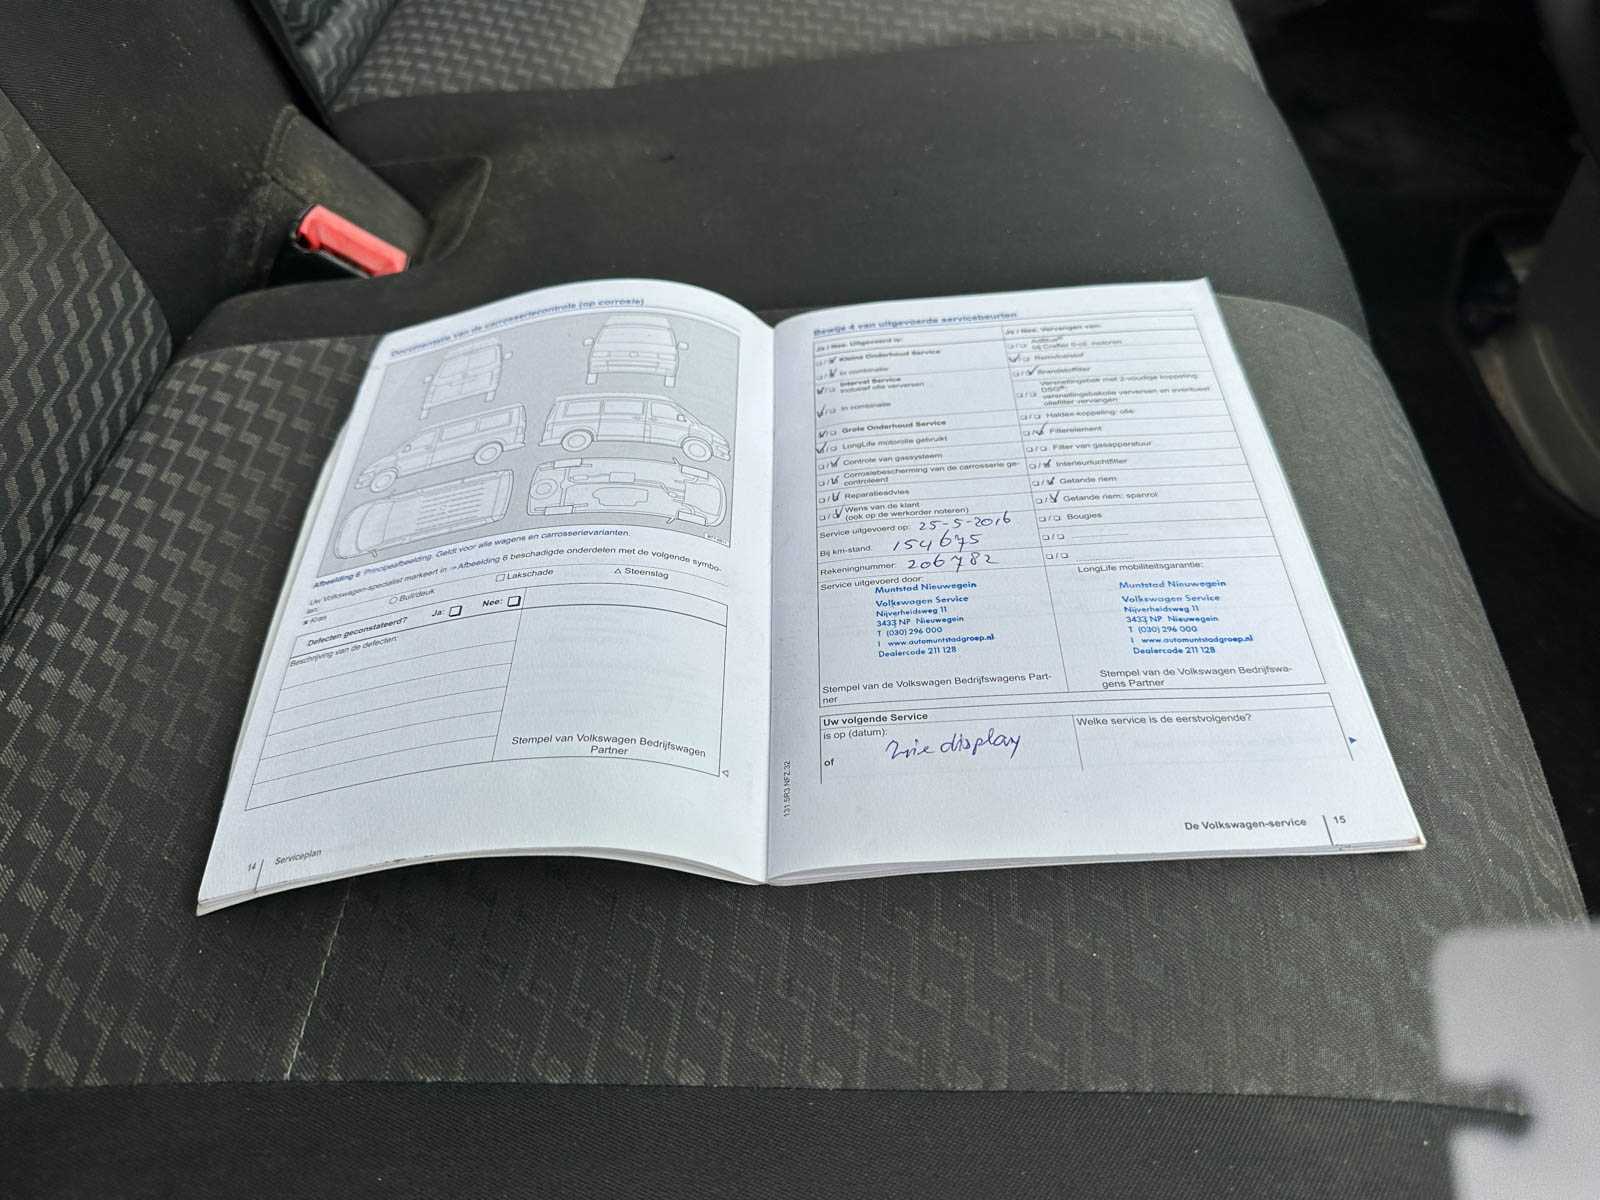 Documentatie van de carrosseriecontrole (op corrosie)
Afbeelding 6 Principeafbeelding. Geldt voor alle wagens en carrosserievarianten.
Uw Volkswagen-specialist markeert in -> Afbeelding 6 beschadigde onderdelen met de volgende symbo-
len:
○ Buil/deuk
□ Lakschade
△ Steenslag
Kras
Defecten geconstateerd?
Ja: □
Nee: □
Beschrijving van de defecten:
Stempel van Volkswagen Bedrijfswagen
Partner
14 Serviceplan
Bewijs 4 van uitgevoerde servicebeurten
Ja / Nee: Uitgevoerd is:
Kleine Onderhoud Service
In combinatie
Interval Service
inclusief olie verversen
In combinatie
Grote Onderhoud Service
LongLife motorolie gebruikt
Controle van gassysteem
Corrosiebescherming van de carrosserie ge-
controleerd
Reparatieadvies
Wens van de klant
(ook op de werkorder noteren)
Service uitgevoerd op: 25-5-2016
Bij km-stand: 154675
Rekeningnummer: 206782
Service uitgevoerd door:
Muntstad Nieuwegein
Volkswagen Service
Nijverheidsweg 11
3433 NP Nieuwegein
T (030) 296 000
I www.automuntstadgroep.nl
Dealercode 211 128
Stempel van de Volkswagen Bedrijfswagens Part-
ner
Ja / Nee: Vervangen van:
AdBlue®
bij Crafter 5-cil. motoren
Remvloeistof
Brandstoffilter
Versnellingsbak met 2-voudige koppeling
DSG®:
versnellingsbakolie verversen en eventueel
oliefilter vervangen
Haldex-koppeling: olie
Filterelement
Filter van gasapparatuur
Interieurluchtfilter
Getande riem
Getande riem: spanrol
Bougies
LongLife mobiliteitsgarantie:
Muntstad Nieuwegein
Volkswagen Service
Nijverheidsweg 11
3433 NP Nieuwegein
T (030) 296 000
I www.automuntstadgroep.nl
Dealercode 211 128
Stempel van de Volkswagen Bedrijfswa-
gens Partner
Uw volgende Service
is op (datum):
Zie display
of
Welke service is de eerstvolgende?
131.5R3.NFZ.32
De Volkswagen-service 15